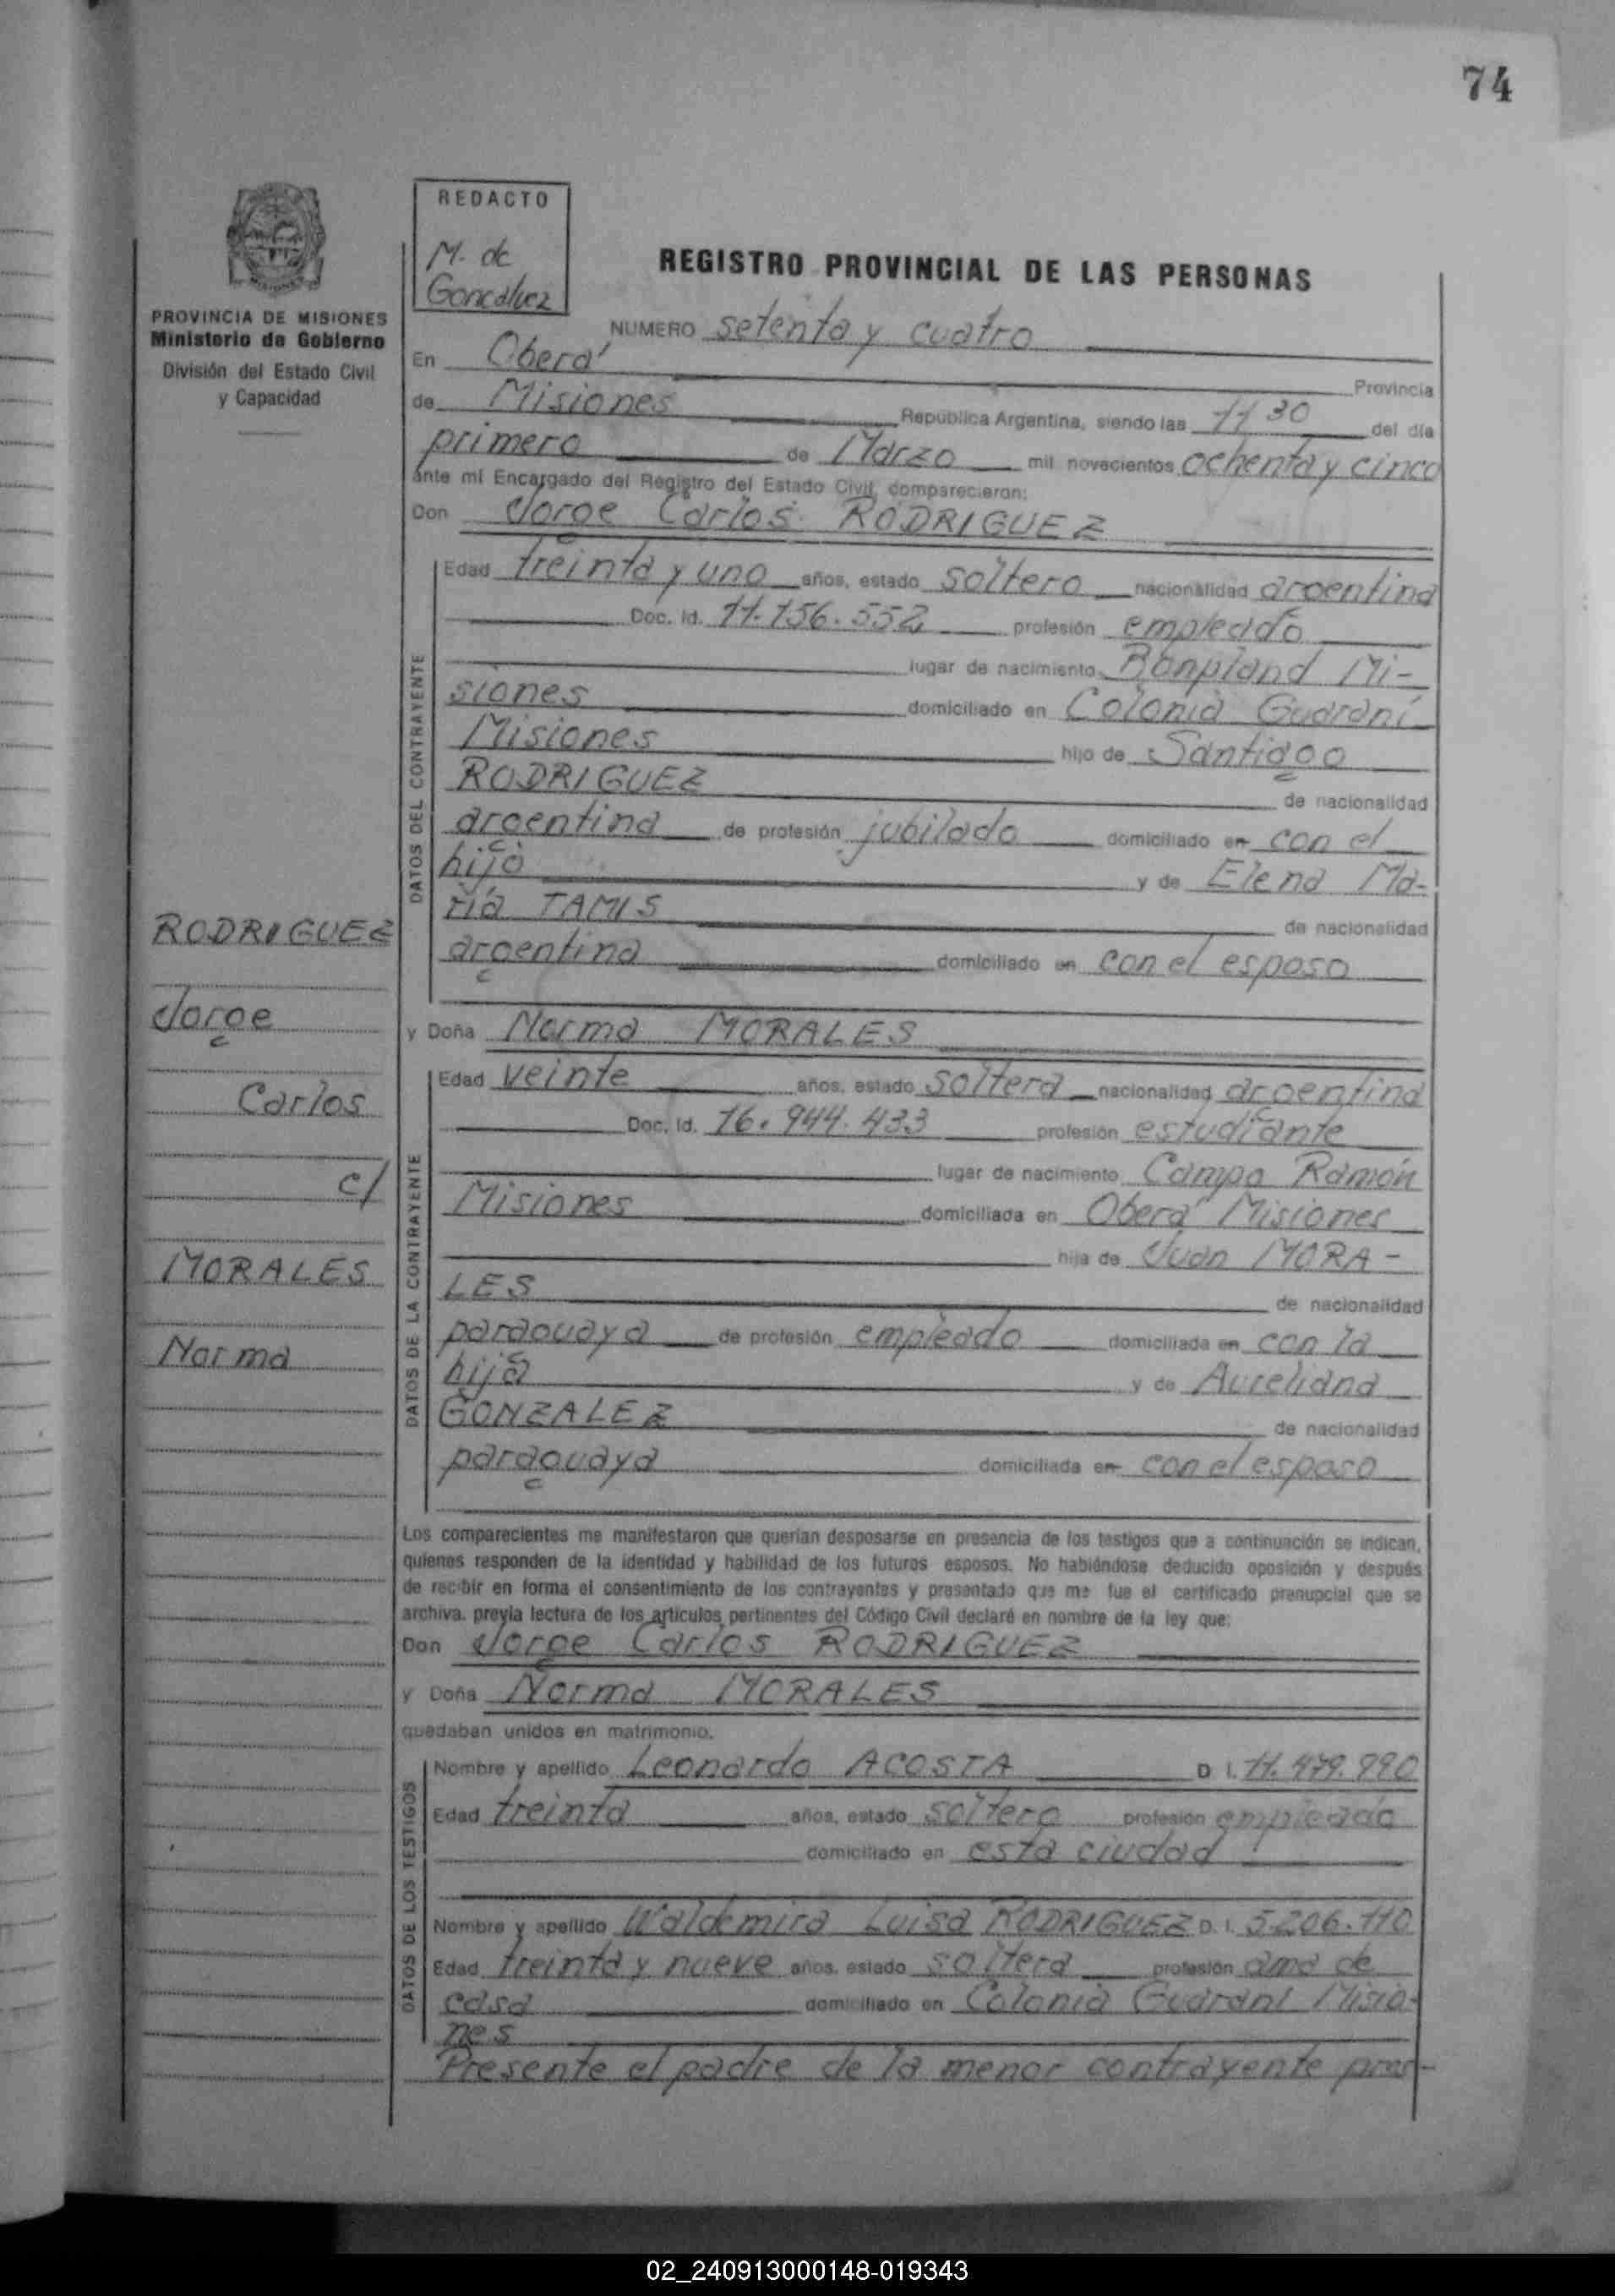 74
REDACTO
M. de
Goncalvez
REGISTRO PROVINCIAL DE LAS PERSONAS
PROVINCIA DE MISIONES
Ministerio de Gobierno
División del Estado Civil
y Capacidad
NUMERO setenta y cuatro
En Oberá Provincia
de Misiones República Argentina, siendo las 11 30 del día
primero de Marzo mil novecientos ochenta y cinco
ante mí Encargado del Registro del Estado Civil, comparecieron:
Don Jorge Carlos RODRIGUEZ
DATOS DEL CONTRAYENTE
Edad treinta y uno años, estado soltero nacionalidad argentina
Doc. Id. 11.156.552 profesión empleado
lugar de nacimiento Bonpland Mi-
siones domiciliado en Colonia Guaraní
Misiones hijo de Santiago
RODRIGUEZ de nacionalidad
argentina de profesión jubilado domiciliado en con el
hijo y de Elena Ma-
ría TAMIS de nacionalidad
argentina domiciliado en con el esposo
y Doña Norma MORALES
DATOS DE LA CONTRAYENTE
Edad veinte años, estado soltera nacionalidad argentina
Doc. Id. 16.944.433 profesión estudiante
lugar de nacimiento Campo Ramón
Misiones domiciliada en Oberá Misiones
hija de Juan MORA-
LES de nacionalidad
paraguaya de profesión empleado domiciliada en con la
hija y de Aureliana
GONZALEZ de nacionalidad
paraguaya domiciliada en con el esposo
RODRIGUEZ
Jorge
Carlos
c/
MORALES
Norma
Los comparecientes me manifestaron que querían desposarse en presencia de los testigos que a continuación se indican,
quienes responden de la identidad y habilidad de los futuros esposos. No habiéndose deducido oposición y después
de recibir en forma el consentimiento de los contrayentes y presentado que me fue el certificado prenupcial que se
archiva, previa lectura de los artículos pertinentes del Código Civil declaré en nombre de la ley que:
Don Jorge Carlos RODRIGUEZ
y Doña Norma MORALES
quedaban unidos en matrimonio.
DATOS DE LOS TESTIGOS
Nombre y apellido Leonardo ACOSTA D I. 11.479.990
Edad treinta años, estado soltero profesión empleado
domiciliado en esta ciudad
Nombre y apellido Waldemira Luisa RODRIGUEZ D. I. 5.206.110
Edad treinta y nueve años, estado soltera profesión ama de
casa domiciliado en Colonia Guaraní Misio-
nes
Presente el padre de la menor contrayente pres-
02_240913000148-019343